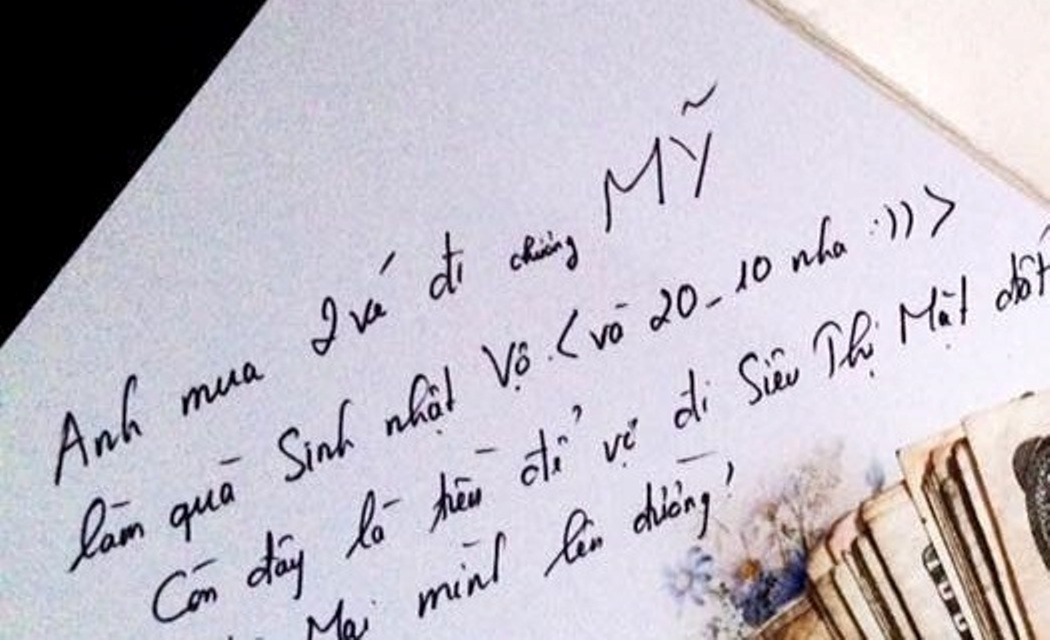 Anh mua 2 vé đi chương MỸ
làm quà Sinh nhật Vợ. < và 20-10 nha :))) >
Còn đây là tiền để vợ đi Siêu Thị Mặt đất
Mai mình lên đường!